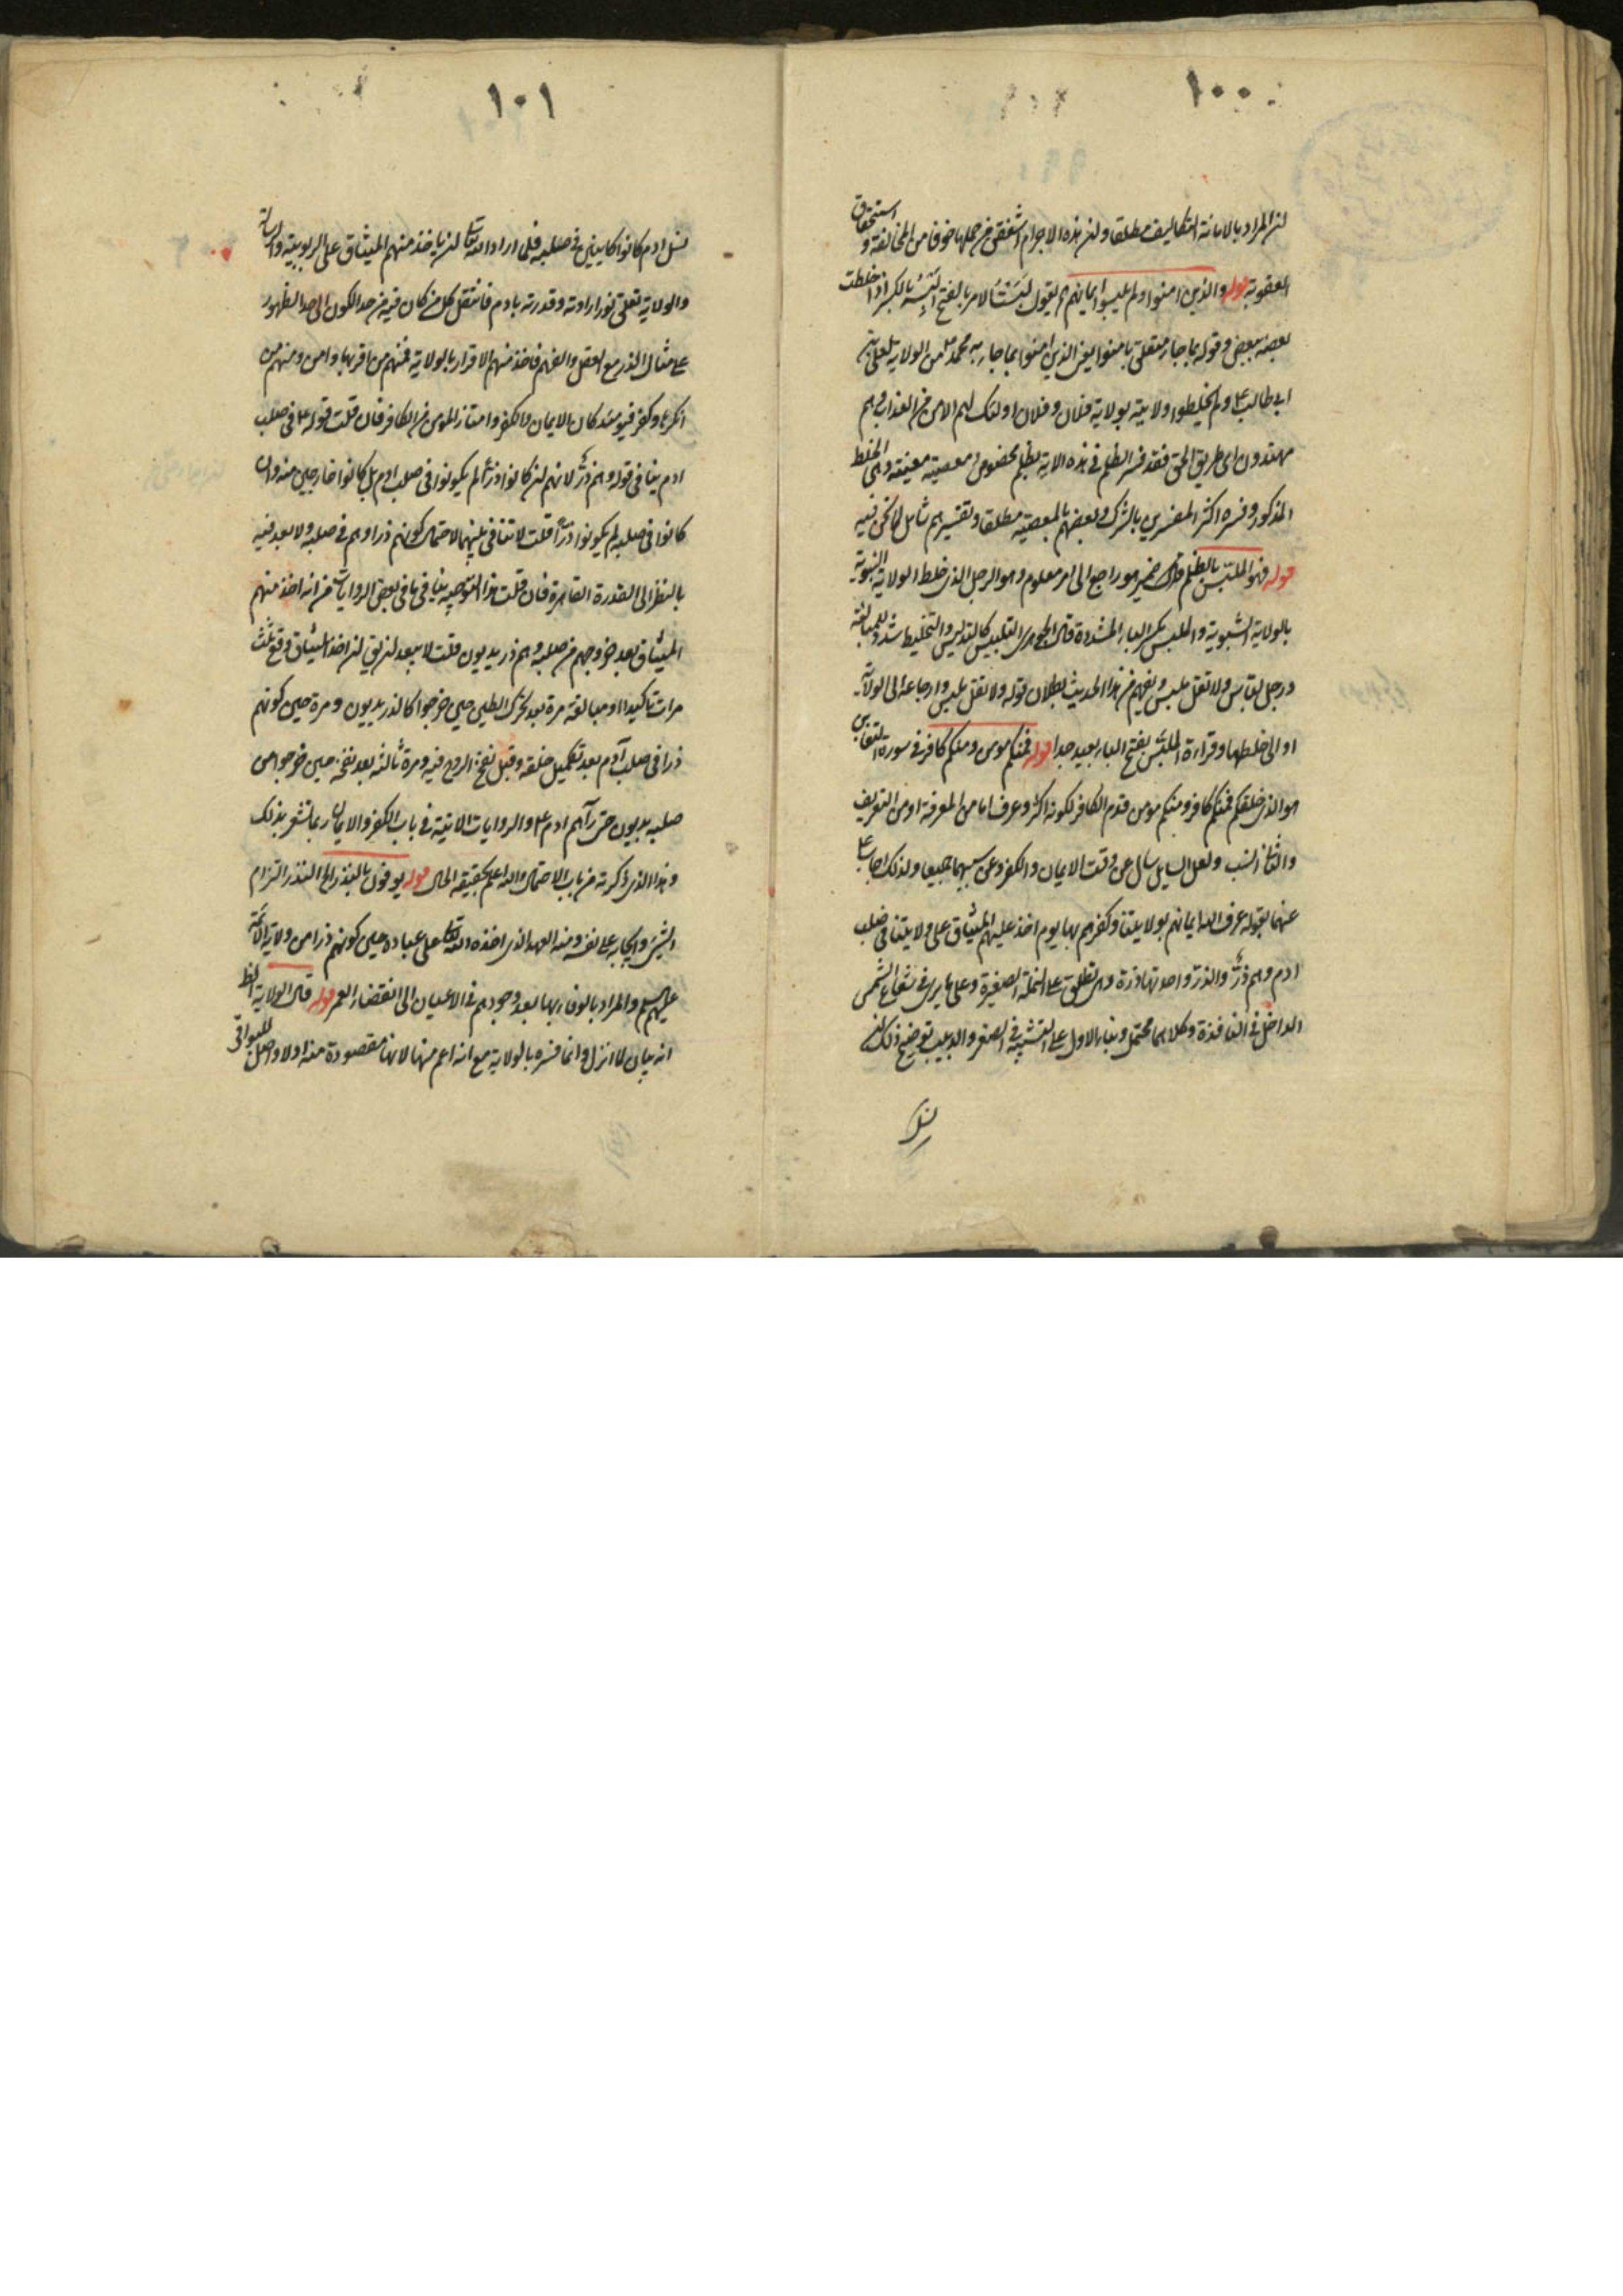 ١٠٠
ان المراد بالامانة التكاليف مطلقا وان هذه الاجرام اشفقن من حملها خوفا من المخالفة و استحقاق
العقوبة قوله والذين امنوا ولم يلبسوا ايمانهم بظلم يقول لبست الامر بالفتح البسه بالكسر اذا خلطت
بعضه ببعض وقوله بما جاء متعلق بامنوا يعني الذين امنوا بما جاء به محمد ص من الولاية لعلي بن
ابي طالب ع ولم يخلطوا ولايته بولاية فلان وفلان اولئك لهم الامن من العذاب وهم
مهتدون الى طريق الحق فقد فسر الظلم في هذه الاية بظلم مخصوص ومعصية معينة وهي الخلط
المذكور وفسره اكثر المفسرين بالشرك وبعضهم بالمعصية مطلقا وتفسيرهم شامل لما نحن فيه
قوله فهو الملبس بالظلم ضمير هو راجع الى امر معلوم وهو الرجل الذي خلط الولاية النبوية
بالولاية الشيوية والملبس بكسر الباء المشددة قال الجوهري التلبيس كالتدليس والتخليط شدد للمبالغة
ورجل لباس ولا تقل ملبس ويفهم من هذا الحديث بطلان قوله ولا تقل ملبس وارجاعه الى الولاية
او الى خلطها وقراءة الملبس بفتح الباء بعيد جدا قوله فمنكم مومن ومنكم كافر في سورة التغابن
هو الذي خلقكم فمنكم كافر ومنكم مومن قدم الكافر لكونه اكثر وعرف اما من المعرفة او من التعريف
والثاني انسب ولعل السايل سال عن وقت الايمان والكفر وعن سببهما جميعا ولذلك اجاب ع
عنهما بقوله عرف الله ايمانهم بولايتنا وكفرهم بها يوم اخذ عليهم الميثاق على ولايتنا في صلب
ادم وهم ذر والذر واحدتها ذرة وهي تطلق على النملة الصغيرة وعلى ما يرى في شعاع الشمس
الداخل في النافذة وكلاهما محتمل وبناء الاول على التشبيه في الصغر والدبيب توضيح ذلك ان
نسل
١٠١
نسل ادم كانوا كاينين في صلبه فلما اراد الله تعالى ان ياخذ منهم الميثاق على الربوبية والرسالة
والولاية تعلق نور ارادته وقدرته بادم فانتقل كل من كان فيه من حد الكون الى حد الظهور
على مثال الذر مع العقل والفهم فاخذ منهم الاقرار بالولاية فمنهم من اقر بها وامن ومنهم من
انكرها وكفر فيومئذ كان الايمان والكفر وامتاز المومن من الكافر فان قلت قوله ع في صلب
ادم ينافي قوله وهم ذر لانهم ان كانوا ذرا لم يكونوا في صلب ادم بل كانوا خارجين منه وان
كانوا في صلبه لم يكونوا ذرا قلت لا تنافي بينهما لاحتمال كونهم ذرا وهم في صلبه ولا بعد فيه
بالنظر الى القدرة القاهرة فان قلت هذا التوجيه ينافي ما في بعض الروايات من انه اخذ منهم
الميثاق بعد خروجهم من صلبه وهم ذر يدبون قلت لا يبعد ان يق ان اخذ الميثاق وقع ثلث
مرات تاكيدا او مبالغة مرة بعد تحرك الطين حين خرجوا كالذر يدبون ومرة حين كونهم
ذرا في صلب آدم بعد تكميل خلقه وقبل نفخ الروح فيه ومرة ثالثة بعد نفخه حين خرجوا من
صلبه يدبون حتى رآهم ادم ع والروايات الاتية في باب الكفر والايمان ربما تشعر بذلك
وهذا الذي ذكرته من باب الاحتمال والله اعلم بحقيقة الحال قوله يوفون بالنذر الخ النذر التزام
الشيء وايجابه على نفسه ومنه العهد الذي اخذه الله تعالى على عباده حين كونهم ذرا من ولاية الائمة
عليهم السلم والمراد بالوفاء بها بعد وجودهم في الاعيان الى انقضاء العمر قوله قال الولاية الظ
انه بيان لما انزل وانما فسره بالولاية مع انه اعم منها لانها مقصودة منه اولا واصل للبواقي